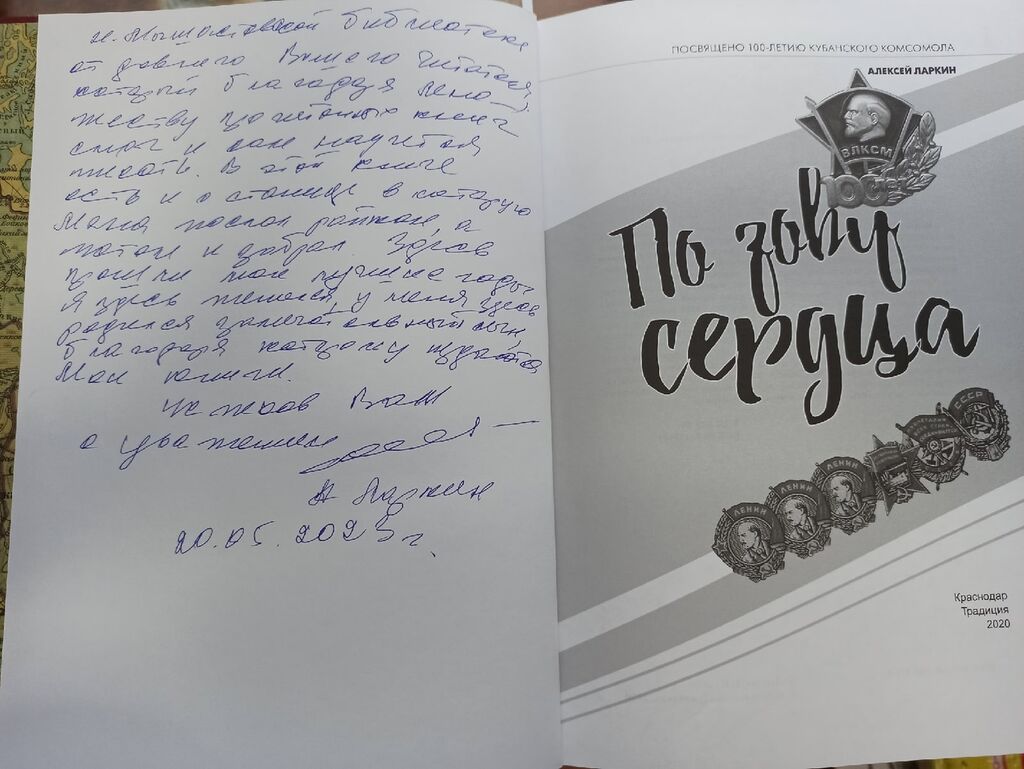 н. Мышастовской библиотеке
от давнего Вашего читателя,
который благодаря мно-
жеству прочитанных книг
смог и сам научится
писать. В этой книге
есть и о станице в которую
меня послал райком, а
потом и избрал. Здесь
прошли мои лучшие годы,
я здесь женился, у меня здесь
родился замечательный сын,
благодаря которому издаются
мои книги.
Искренне Ваш
с уважением
А Ларкин
20.05.2023 г.
ПОСВЯЩЕНО 100-ЛЕТИЮ КУБАНСКОГО КОМСОМОЛА
АЛЕКСЕЙ ЛАРКИН
ВЛКСМ
100 лет
По зову
сердца
СССР
ЛЕНИН
ЛЕНИН
ЛЕНИН
Краснодар
Традиция
2020